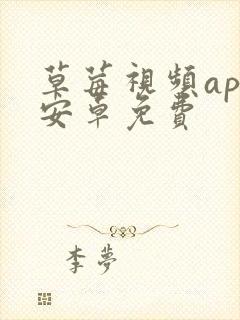 草莓視頻ap
安卓免費
李夢